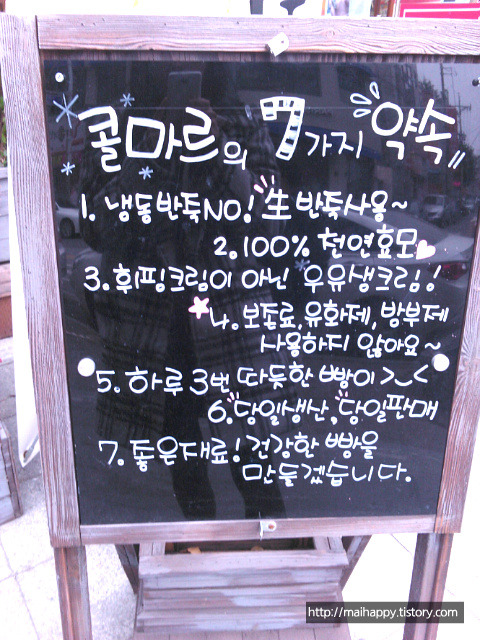 콜마르의 7가지 약속
1. 냉동반죽NO! 生 반죽사용~
2. 100% 천연효모
3. 휘핑크림이 아닌 우유생크림!
4. 보존료, 유화제, 방부제
사용하지 않아요~
5. 하루 3번 따듯한 빵이 >_<
6. 당일생산, 당일판매
7. 좋은재료! 건강한 빵을
만들겠습니다.
http://maihappy.tistory.com